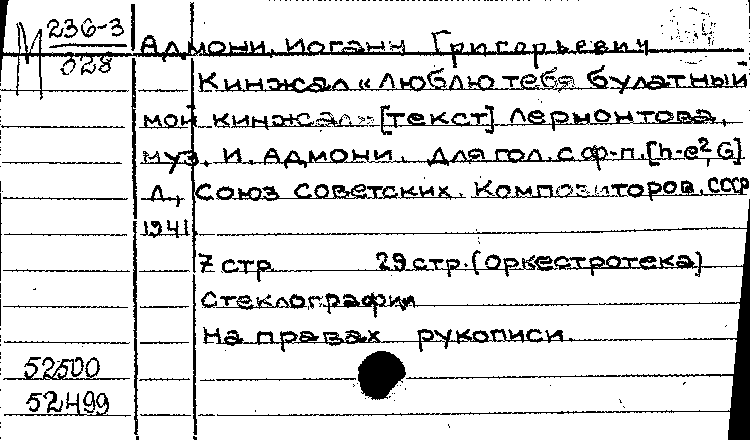 М 236-3
328
Адмони, Иоганн Григорьевич
Кинжал "Люблю тебя булатный
мой кинжал" [текст] Лермонтова,
муз. И. Адмони. Для гол. с ф-п. [h-e², G]
Л., Союз Советских Композиторов, СССР
1941.
7 стр 29 стр. (оркестротека)
Стеклография
На правах рукописи.
52500
52499